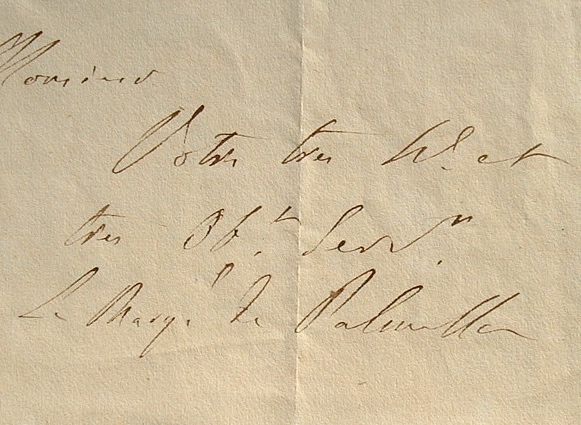 Monsieur
Votre très h.e et
très Ob.t Serv.r
Le Marq.s de Palmella